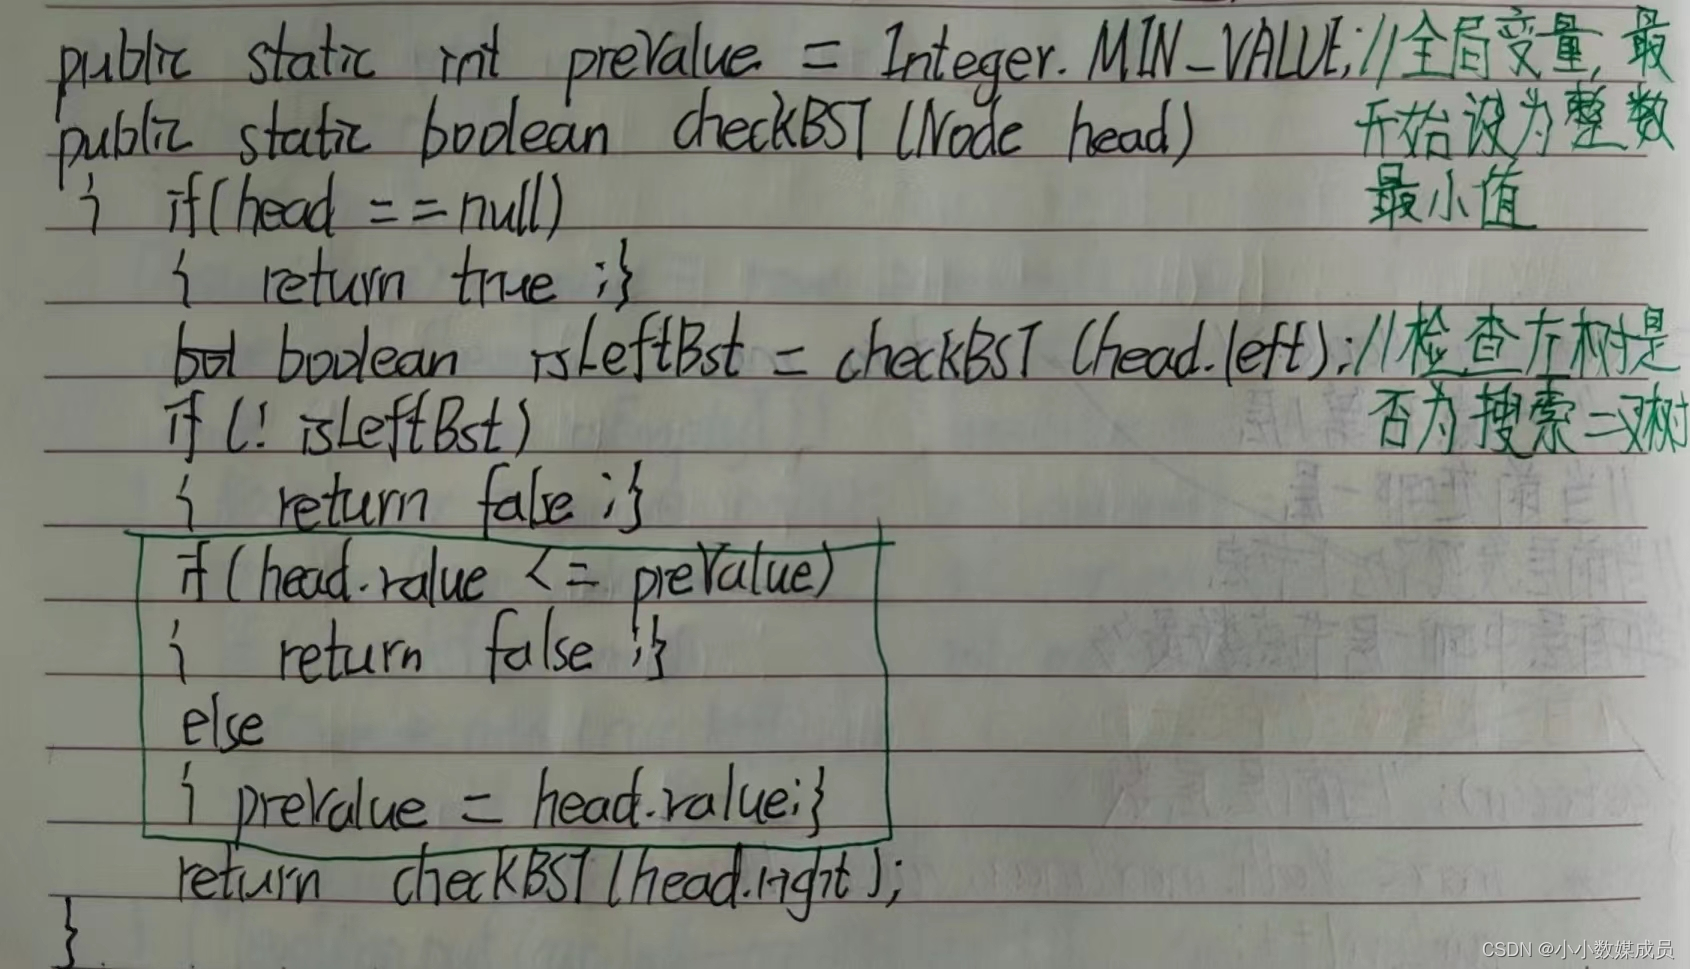 public static int preValue = Integer.MIN_VALUE; //全局变量,最
public static boolean checkBST (Node head) 开始设为整数
{ if(head == null) 最小值
{ return true ;}
boolean isLeftBst = checkBST (head.left); //检查左树是
if (! isLeftBst) 否为搜索二叉树
{ return false ;}
if (head.value <= preValue)
{ return false ;}
else
{ preValue = head.value;}
return checkBST (head.right);
}
CSDN @小小数媒成员